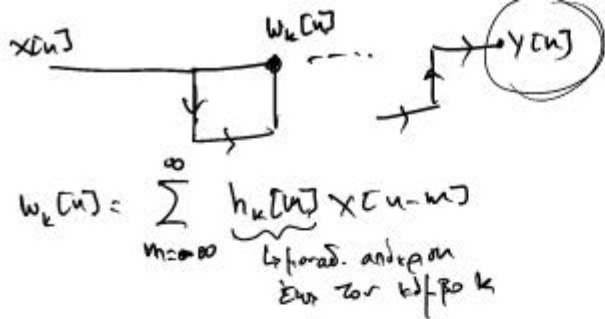 w_k[n]
x[n] ..... y[n]
w_k[n] = ∑_{m=-∞}^{∞} h_k[m] x[n-m]
↳ μοναδ. απόκριση
έως τον κόμβο k